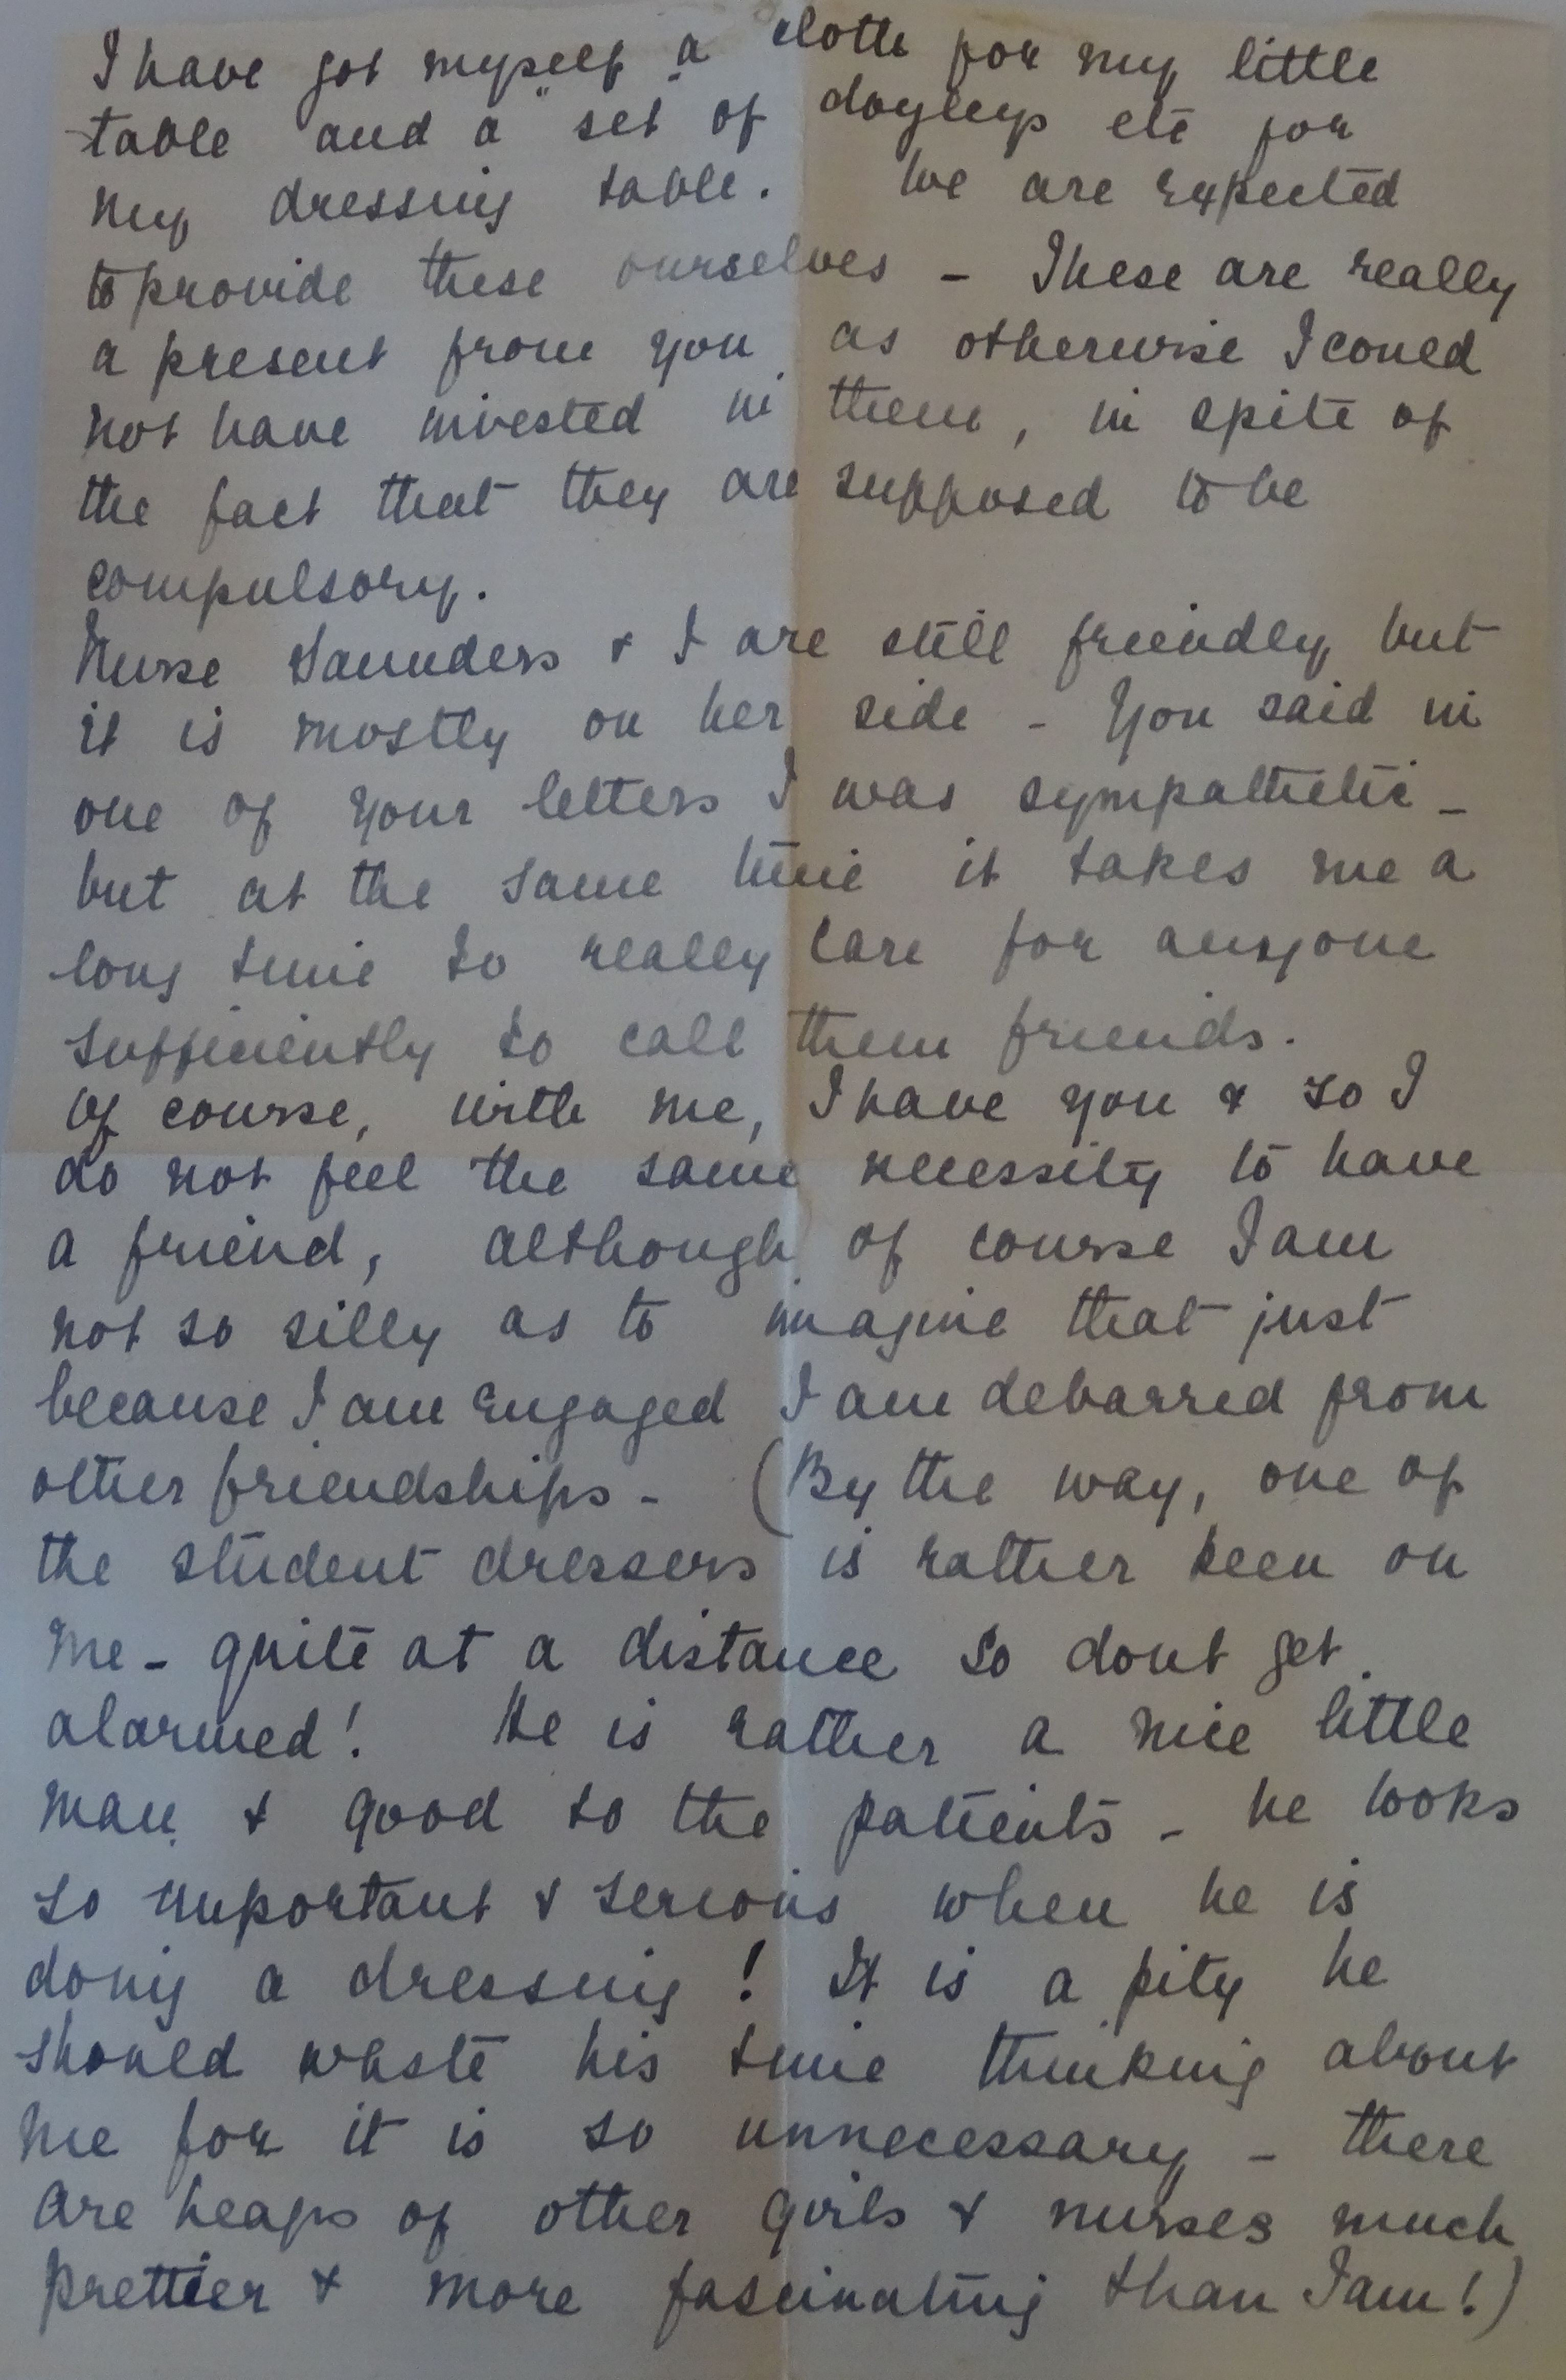 I have got myself a cloth for my little
table and a "set of doyleys etc for
my dressing table. We are expected
to provide these ourselves - These are really
a present from you as otherwise I could
not have invested in them, in spite of
the fact that they are supposed to be
compulsory.
Nurse Saunders & I are still friendly but
it is mostly on her side - You said in
one of your letters I was sympathetic -
but at the same time it takes me a
long time to really care for anyone
sufficiently to call them friends.
Of course, with me, I have you & so I
do not feel the same necessity to have
a friend, although of course I am
not so silly as to imagine that just
because I am engaged I am debarred from
other friendships - (By the way, one of
the student dressers is rather keen on
me - quite at a distance so dont get
alarmed! He is rather a nice little
man & good to the patients - he looks
so important & serious when he is
doing a dressing! It is a pity he
should waste his time thinking about
me for it is so unnecessary - there
are heaps of other girls & nurses much
prettier & more fascinating than I am!)